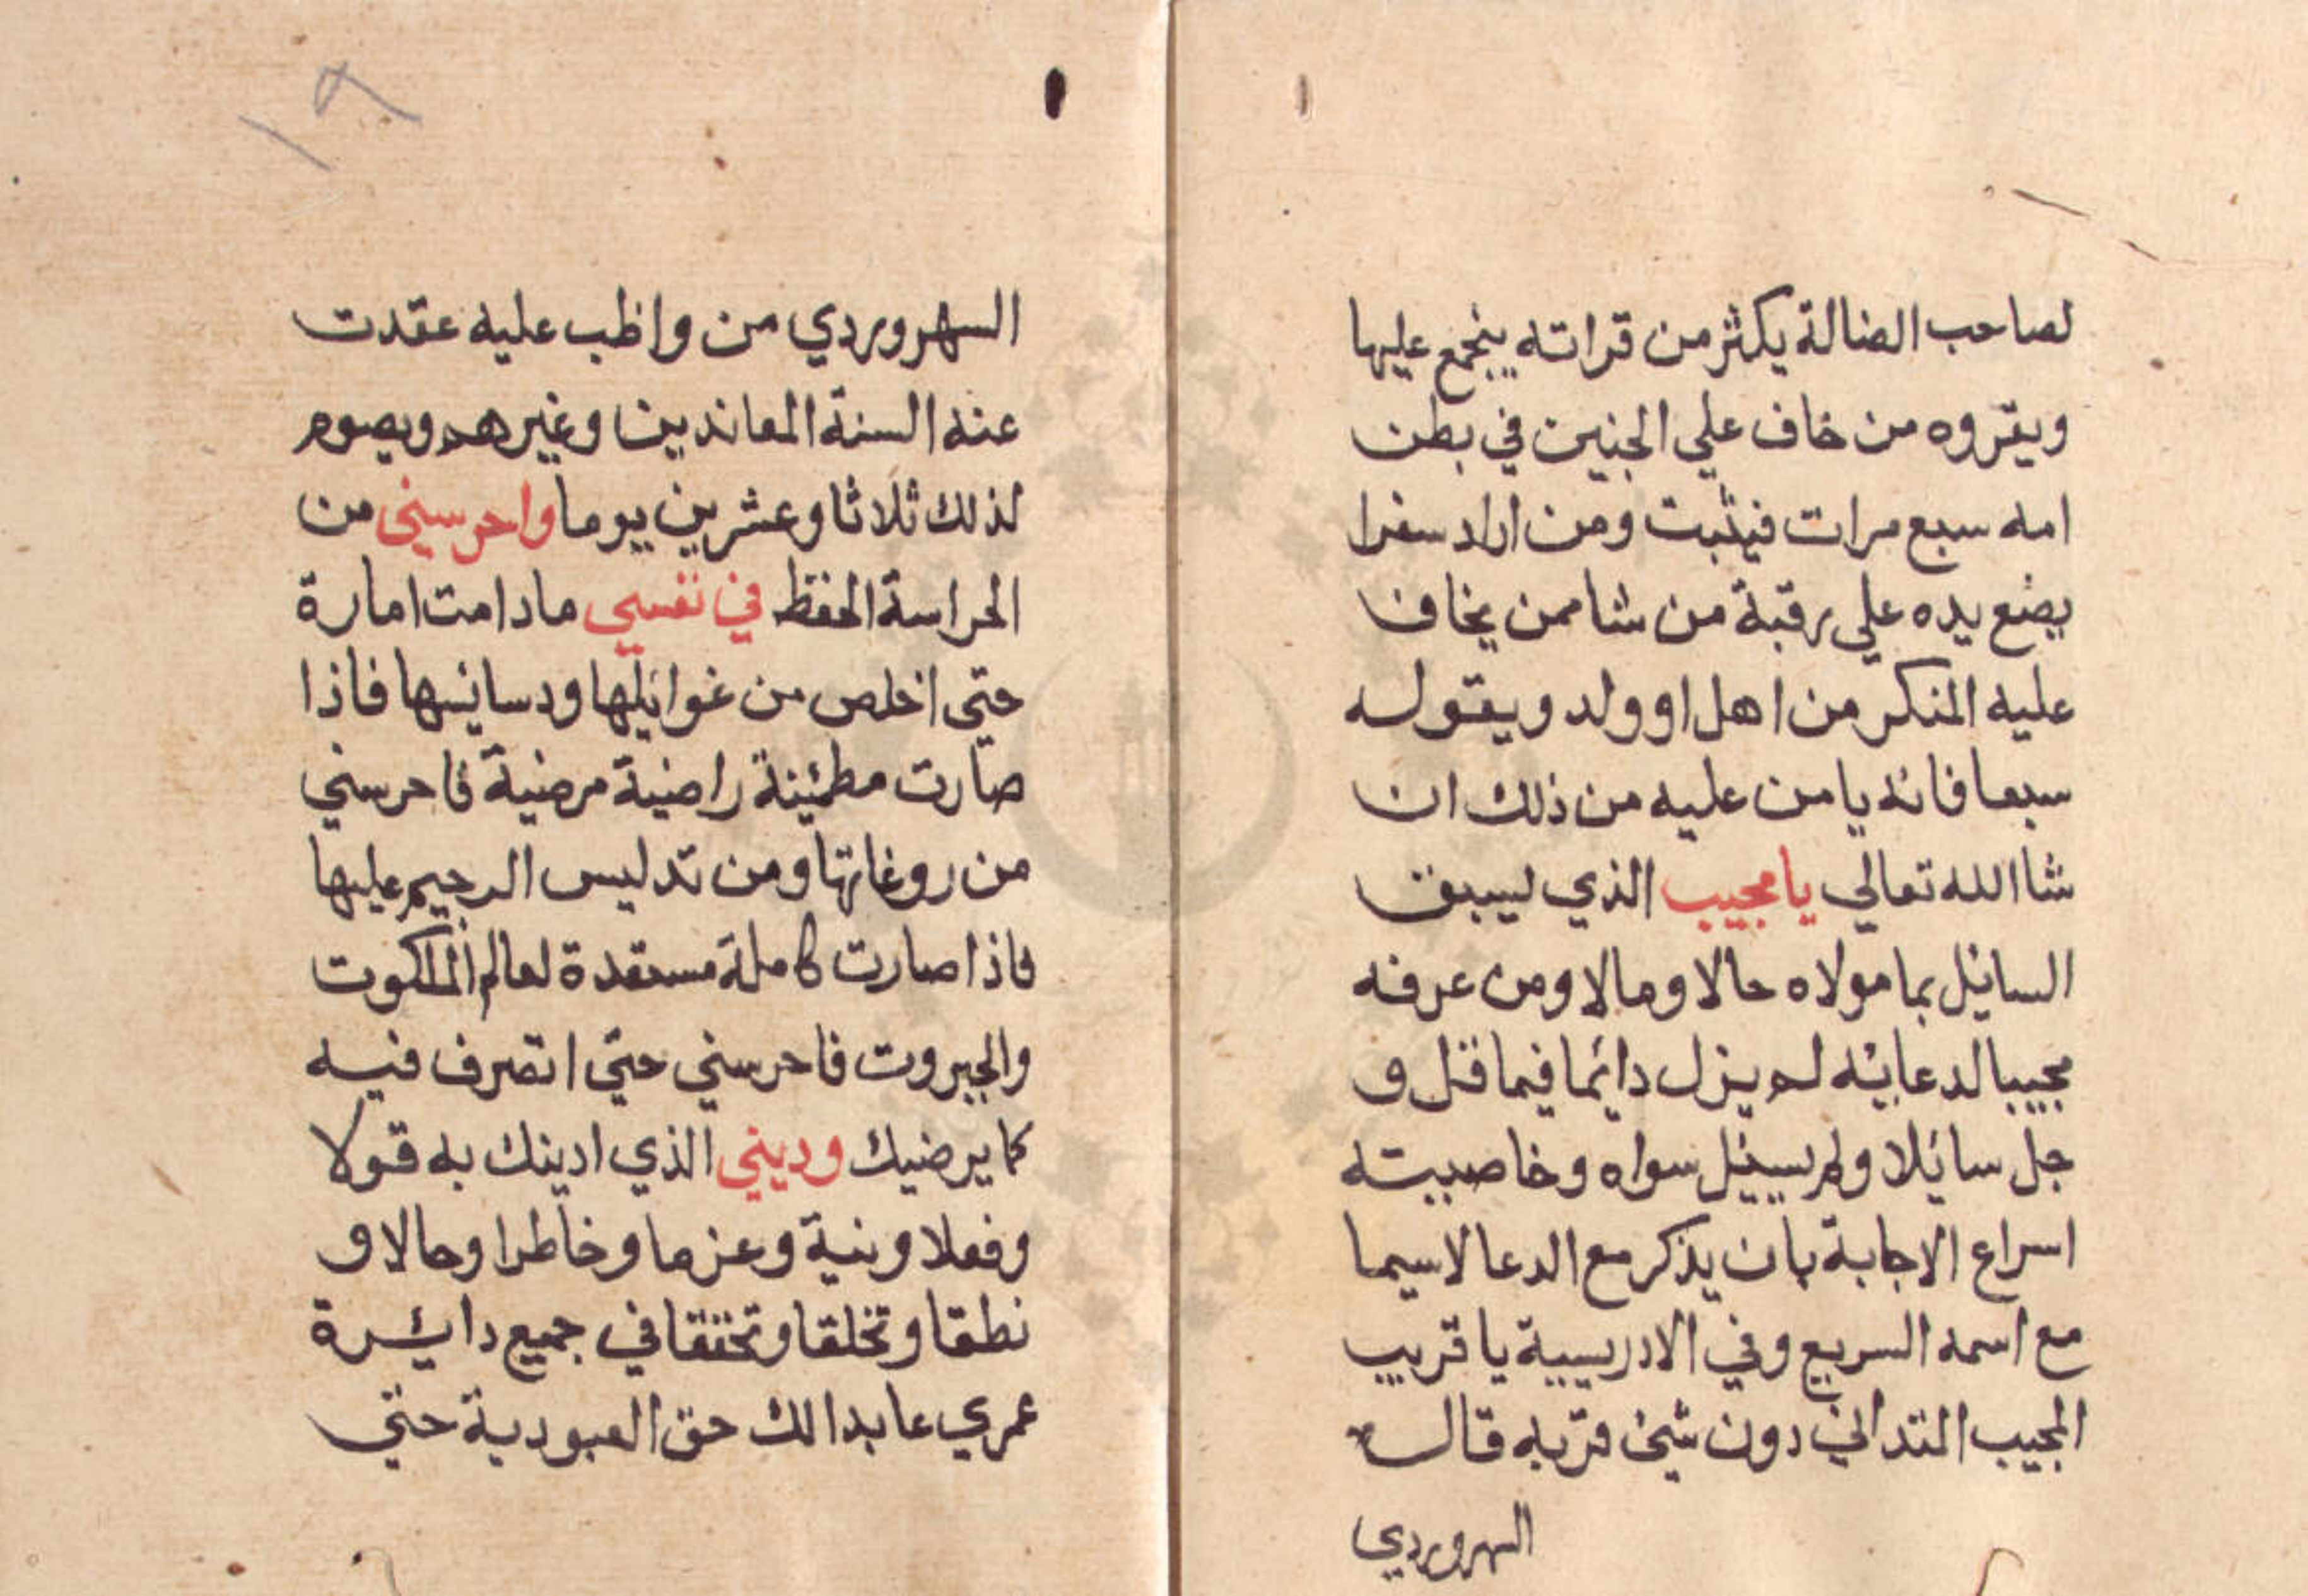 لصاحب الضالة يكثر من قراته ينجمع عليها
ويقروه من خاف علي الجنين في بطن
امه سبع مرات فيثبت ومن اراد سفرا
يضع يده علي رقبة من شا ممن يخاف
عليه المنكر من اهل او ولد ويقوله
سبعا فانه يامن عليه من ذلك ان
شا الله تعالي يا مجيب الذي ليسبق
السايل بما مولاه حالا ومالا ومن عرفه
مجيبا لدعايه لم يزل دايما فيما قل و
جل سايلا ولم يسيل سواه وخاصيته
اسراع الاجابة بان يذكر مع الدعا لاسيما
مع اسمه السريع وفي الادريسية يا قريب
المجيب المتداني دون شي قربه قال
السهروردي
١٩
السهروردي من واظب عليه عقدت
عنه السنة المعاندين وغيرهم ويصوم
لذلك ثلاثا وعشرين يوما واحرسني من
الحراسة الحفظ في نفسي مادامت امارة
حتي اخلص من غوايلها ودسايسها فاذا
صارت مطمئنة راضية مرضية فاحرسني
من روغاتها ومن تدليس الرجيم عليها
فاذا صارت كاملة مستعدة لعالم الملكوت
والجبروت فاحرسني حتي اتصرف فيه
كما يرضيك وديني الذي ادينك به قولا
وفعلا ونية وعزما وخاطرا وحالا و
نطقا وتخلقا وتحققا في جميع دايرة
عمري عابدا لك حق العبودية حتي